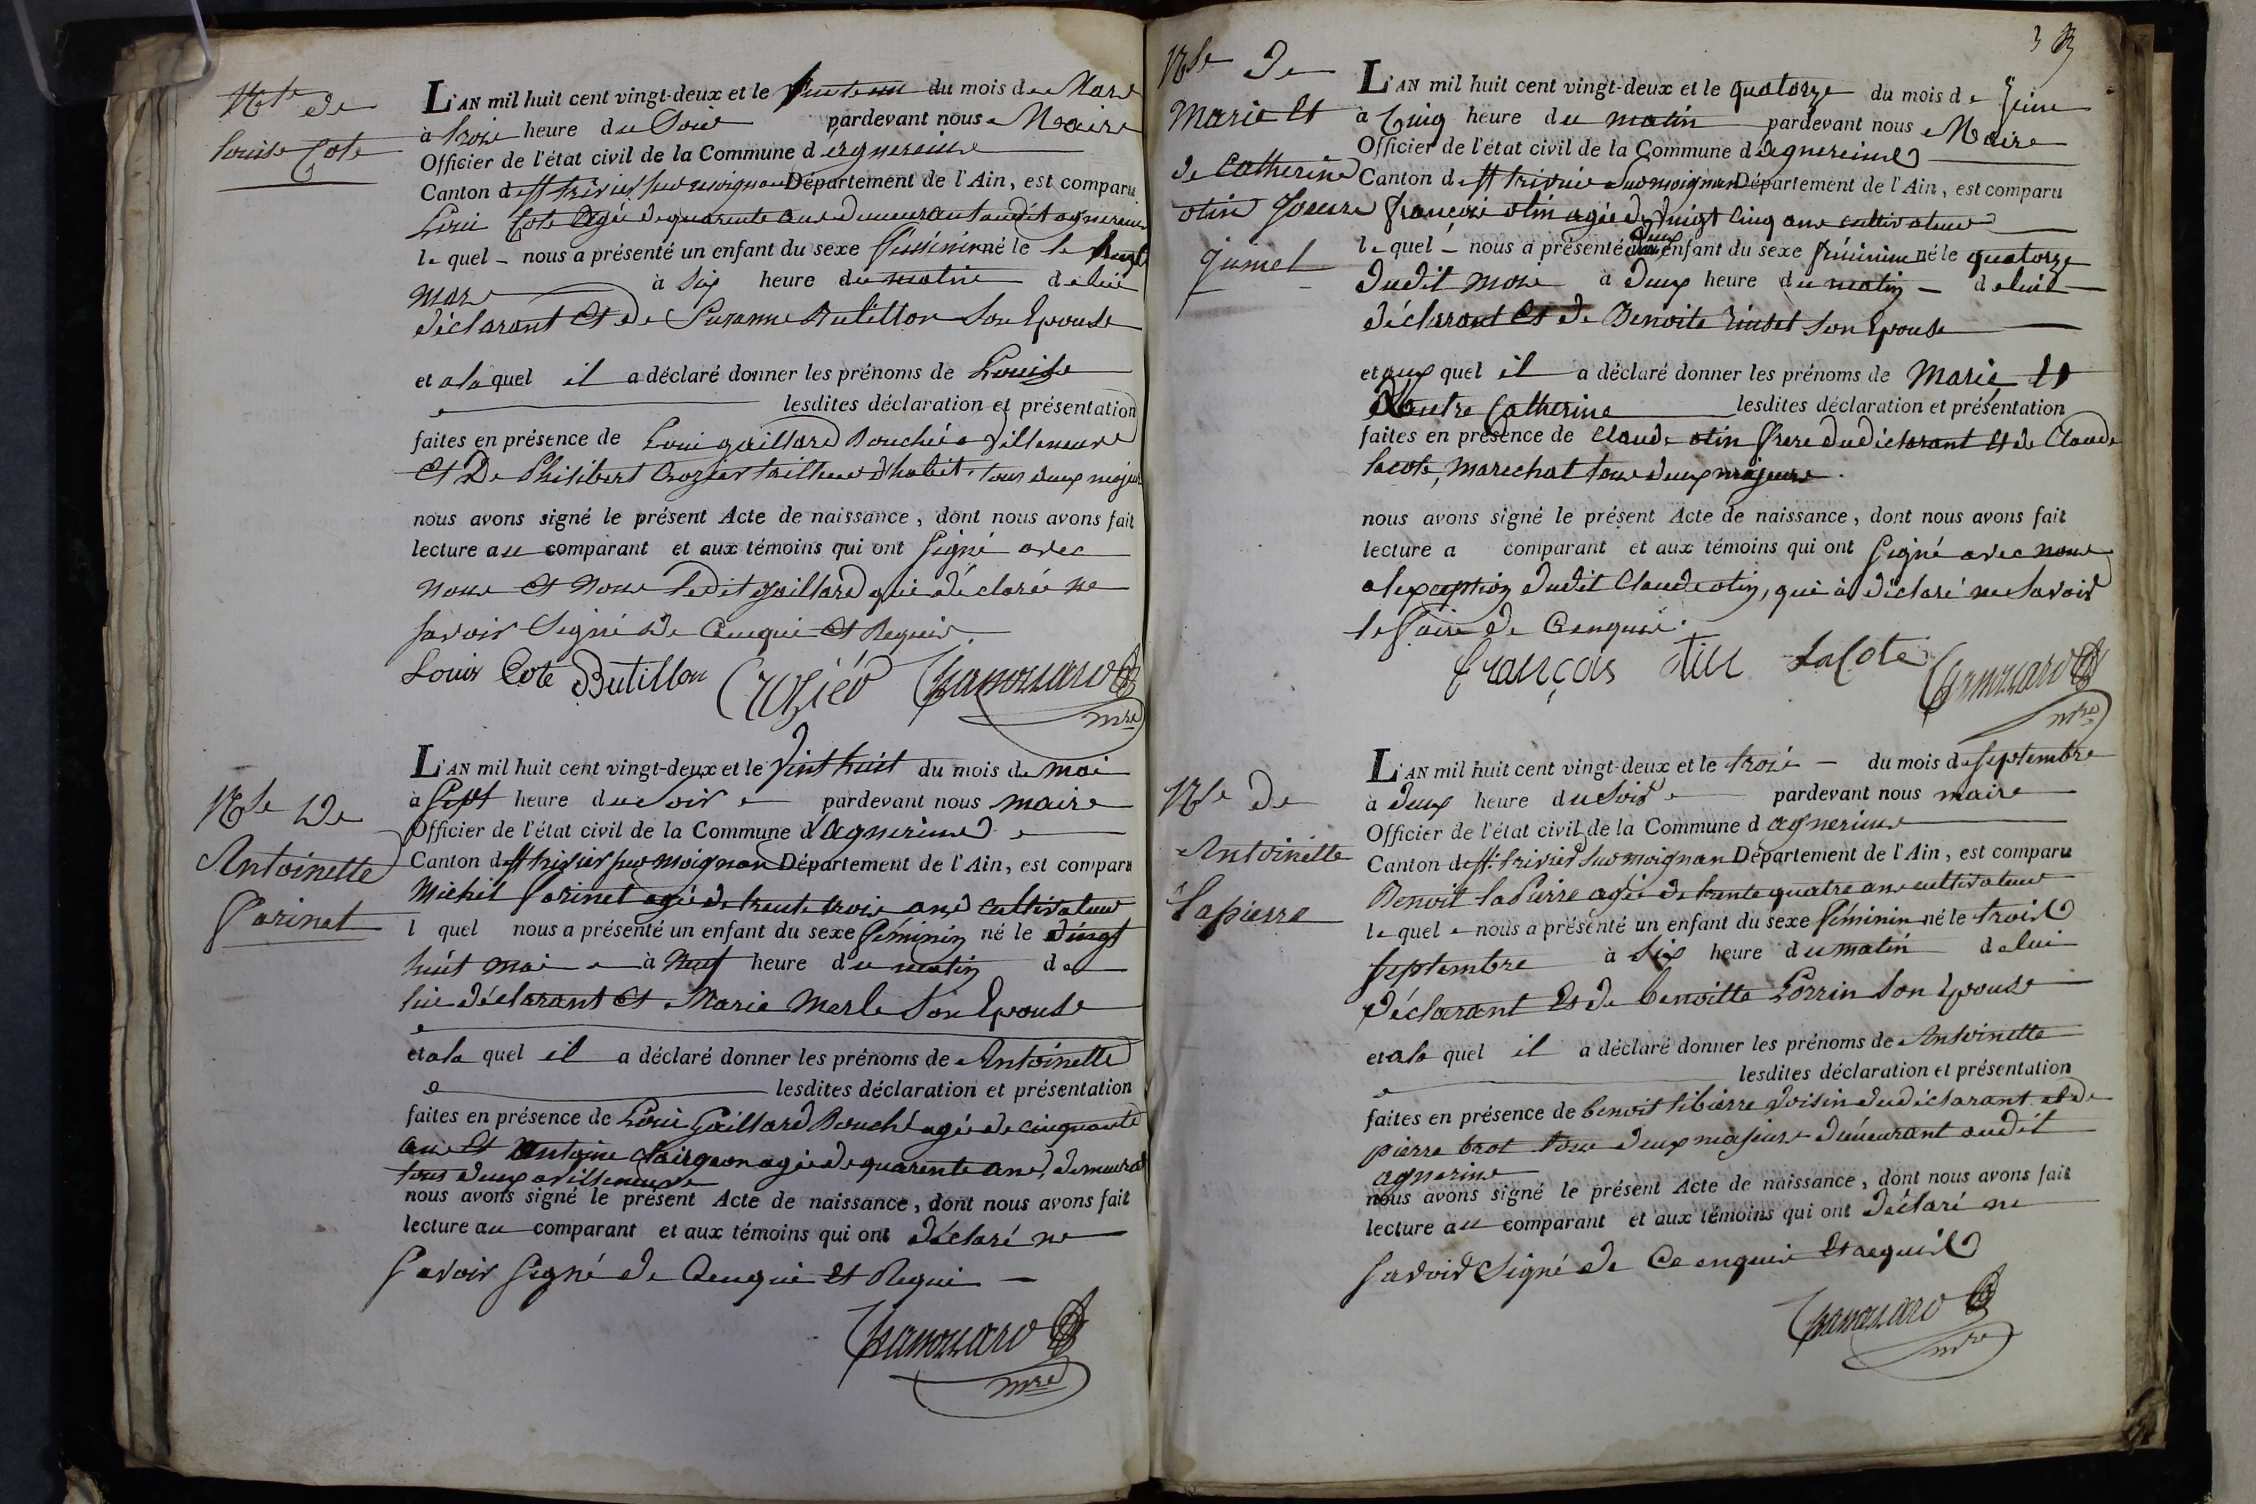 Nce de
Louise Cote
L'AN mil huit cent vingt-deux et le du mois de Mars
à trois heure du Soir pardevant nous Maire
Officier de l'état civil de la Commune d agnereins
Canton de st trivier sur moignan Département de l'Ain, est comparu
Loui Cote agée de quarente ans demeurant audit agnereins
le quel nous a présenté un enfant du sexe féminin né le le
mars à six heure du matin de lui
déclarant et de Suzanne Butillon son Epouse
et a la quel il a déclaré donner les prénoms de Louise
lesdites déclaration et présentation
faites en présence de Loui gaillard Bouché a villeneuve
et De Philibert Crozier tailleur d'habit tous deux majeur
nous avons signé le présent Acte de naissance, dont nous avons fait
lecture au comparant et aux témoins qui ont signé avec
nous et nous ledit gaillard qui a déclarée ne
savoir signé de Cenqui et Requis.
Louis Cote Butillon Crosiér Chamouard
mre
Nce De
Antoinette
Parinet
L'AN mil huit cent vingt-deux et le vint huit du mois de mai
à sept heure du soir pardevant nous maire
Officier de l'état civil de la Commune d'agnerins
Canton de st trivier sur moignan Département de l'Ain, est comparu
Michel Parinet agé de trente trois ans cultivateur
l quel nous a présenté un enfant du sexe féminin né le vingt
huit mai à neuf heure du matin de
lui déclarant et Marie Merle son Epouse
et a la quel il a déclaré donner les prénoms de Antoinette
lesdites déclaration et présentation
faites en présence de Loui Gaillard Bouché agée de cinquante
ans et antoine agée de quarente ans demeurat
tous deux a villeneuve
nous avons signé le présent Acte de naissance, dont nous avons fait
lecture au comparant et aux témoins qui ont déclaré ne
savoir signé de Cenqui et Requi
Chamouard
mre
33
Nce De
Marie et
de Catherine
otin soeurs
jumel
L'AN mil huit cent vingt-deux et le quatorze du mois de
à Cinq heure du matin pardevant nous Maire
Officier de l'état civil de la Commune d agnereins
Canton de st trivier sur moignan Département de l'Ain, est comparu
françois otin agée de vingt cinq ans cultivateur
le quel nous a présenté deux enfant du sexe féminin né le quatorze
dudit mois à deux heure du matin de lui
déclarant et de Benoite son Epouse
et aux quel il a déclaré donner les prénoms de Marie et
Lautre Catherine lesdites déclaration et présentation
faites en présence de Claude otin frere du déclarant et de Claude
lacote, marechal tous deux majeurs.
nous avons signé le présent Acte de naissance, dont nous avons fait
lecture a comparant et aux témoins qui ont signé avec nous
a lexception dudit Claude otin, qui à déclaré ne savoir
le faire de Cenquis.
françois tin Lacote Chamouard
mre
Nce De
Antoinette
Lapierre
L'AN mil huit cent vingt-deux et le trois du mois de septembre
à deux heure du soir pardevant nous maire
Officier de l'état civil de la Commune d agnerins
Canton de st. trivier sur moignan Département de l'Ain, est comparu
Benoit laPierre agée de trente quatre ans cultivateur
le quel nous a présenté un enfant du sexe féminin né le trois
septembre à six heure du matin de lui
déclarant et de benoitte Lorrin son Epouse
et a la quel il a déclaré donner les prénoms de Antoinette
lesdites déclaration et présentation
faites en présence de benoit voisin du déclarant et de
pierre brot tous deux majeurs demeurant audit
agnerins
nous avons signé le présent Acte de naissance, dont nous avons fait
lecture au comparant et aux témoins qui ont déclaré ne
savoir signé de Ce enquis et requis
Chamouard
mre